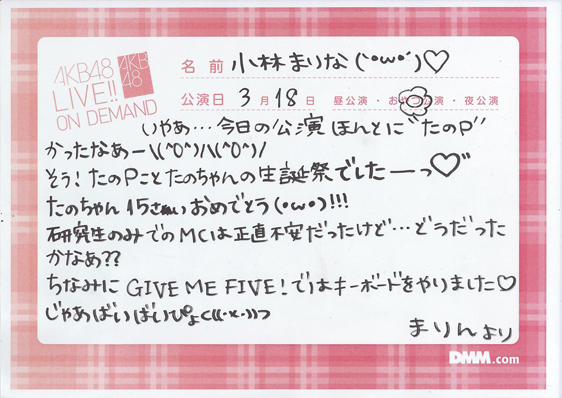 AKB48
LIVE!!
ON DEMAND
AKB
48
名前 小林まりな(`・ω・´)♡
公演日 3月18日 昼公演・おやつ公演・夜公演
いやぁ…今日の公演ほんとに"たのP"
かったなあー\(^O^)/\(^O^)/
そう！たのPことたのちゃんの生誕祭でしたーっ♡"
たのちゃん15さぃおめでとう(・ω・)!!!
研究生のみでのMCは正直不安だったけど…どうだった
かなあ??
ちなみにGIVE ME FIVE!ではキーボードをやりました♡
じゃあばいばいぴよ⊂((・x・))⊃
まりんより
DMM.com